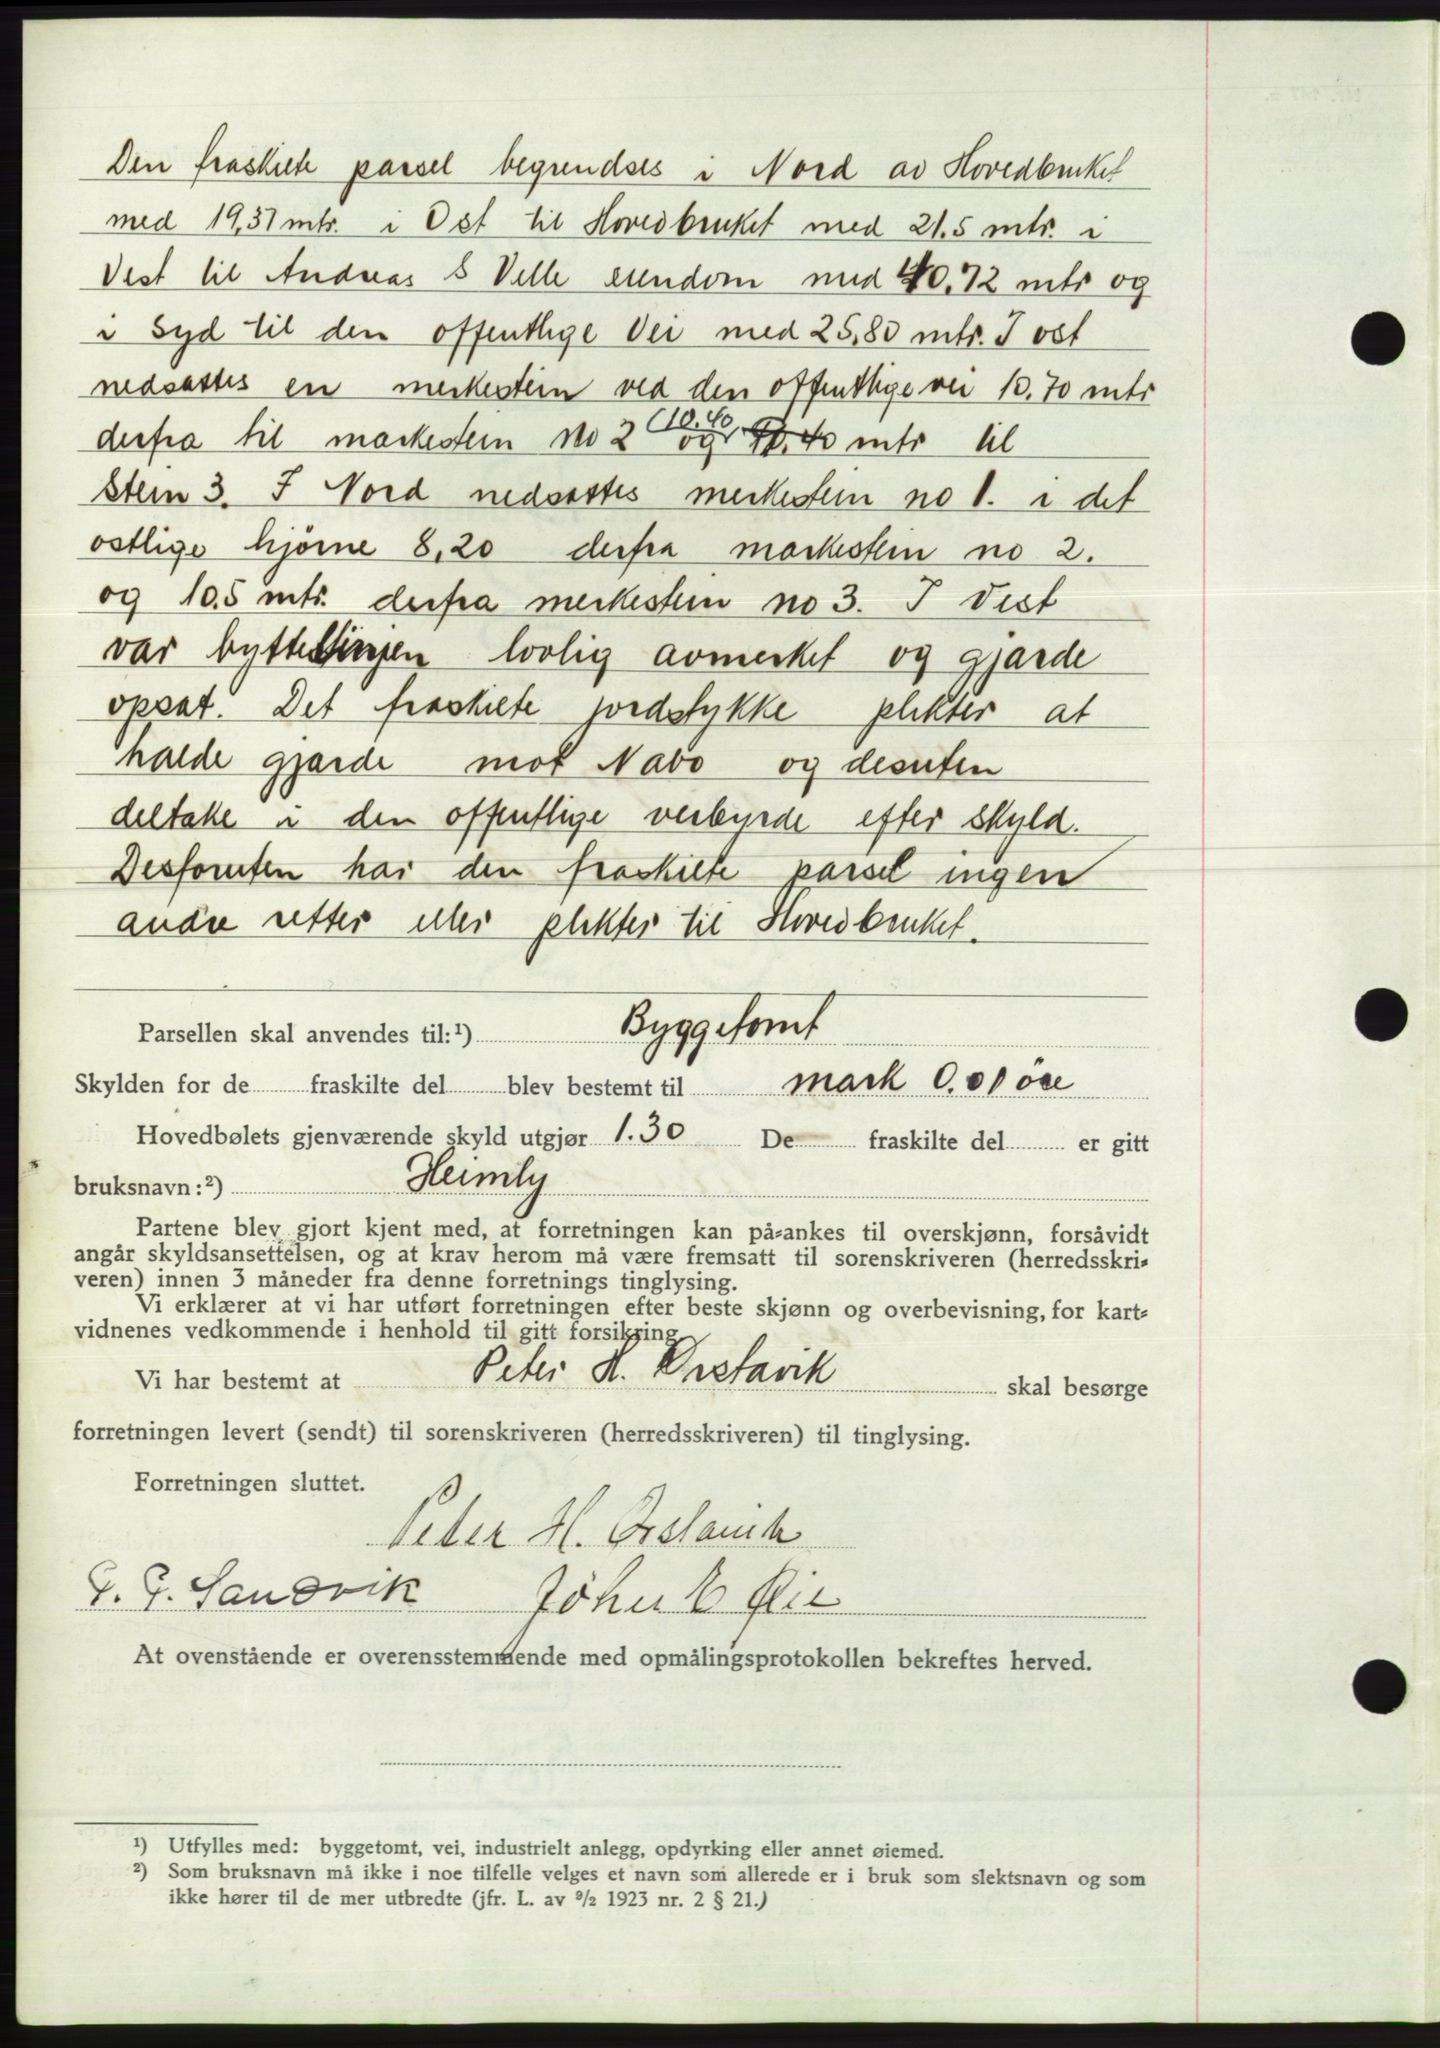 Den fraskilte parsel begrendses i Nord av Hovedbruket
med 19,37 mtr. i Ost til Hovedbruket med 21.5 mtr. i
Vest til Andreas S Velle eiendom med 40.72 mtr og
i Syd til den offentlige Vei med 25,80 mtr. I ost
nedsattes en merkestein ved den offentlige vei 10.70 mtr
(10.40
derfra til markestein No 2 og 10.40 mtr til
Stein 3. I Nord nedsattes merkestein no 1. i det
ostlige hjørne 8,20 derfra markestein no 2.
og 10.5 mtr. derfra merkestein no 3. I Vest
var byttelinjen lovlig avmerket og gjarde
opsat. Det fraskilte jordstykke plikter at
halde gjarde mot Nabo og desuten
deltake i den offentlige veibyrde efter skyld.
Desforuten har den fraskilte parsel ingen
andre retter eller plikter til Hovedbruket.
Parsellen skal anvendes til:¹) Byggetomt
Skylden for de fraskilte del blev bestemt til mark 0.01 øre
Hovedbølets gjenværende skyld utgjør 1.30 De fraskilte del er gitt
bruksnavn:²) Heimly
Partene blev gjort kjent med, at forretningen kan på-ankes til overskjønn, forsåvidt
angår skyldsansettelsen, og at krav herom må være fremsatt til sorenskriveren (herredsskri-
veren) innen 3 måneder fra denne forretnings tinglysing.
Vi erklærer at vi har utført forretningen efter beste skjønn og overbevisning, for kart-
vidnenes vedkommende i henhold til gitt forsikring.
Vi har bestemt at Peter H. Ørstavik skal besørge
forretningen levert (sendt) til sorenskriveren (herredsskriveren) til tinglysing.
Forretningen sluttet.
Peter H. Ørstavik
P. P. Sandvik Johan E Øie
At ovenstående er overensstemmende med opmålingsprotokollen bekreftes herved.
¹) Utfylles med: byggetomt, vei, industrielt anlegg, opdyrking eller annet øiemed.
²) Som bruksnavn må ikke i noe tilfelle velges et navn som allerede er i bruk som slektsnavn og som
ikke hører til de mer utbredte (jfr. L. av ⁹/₂ 1923 nr. 2 § 21.)